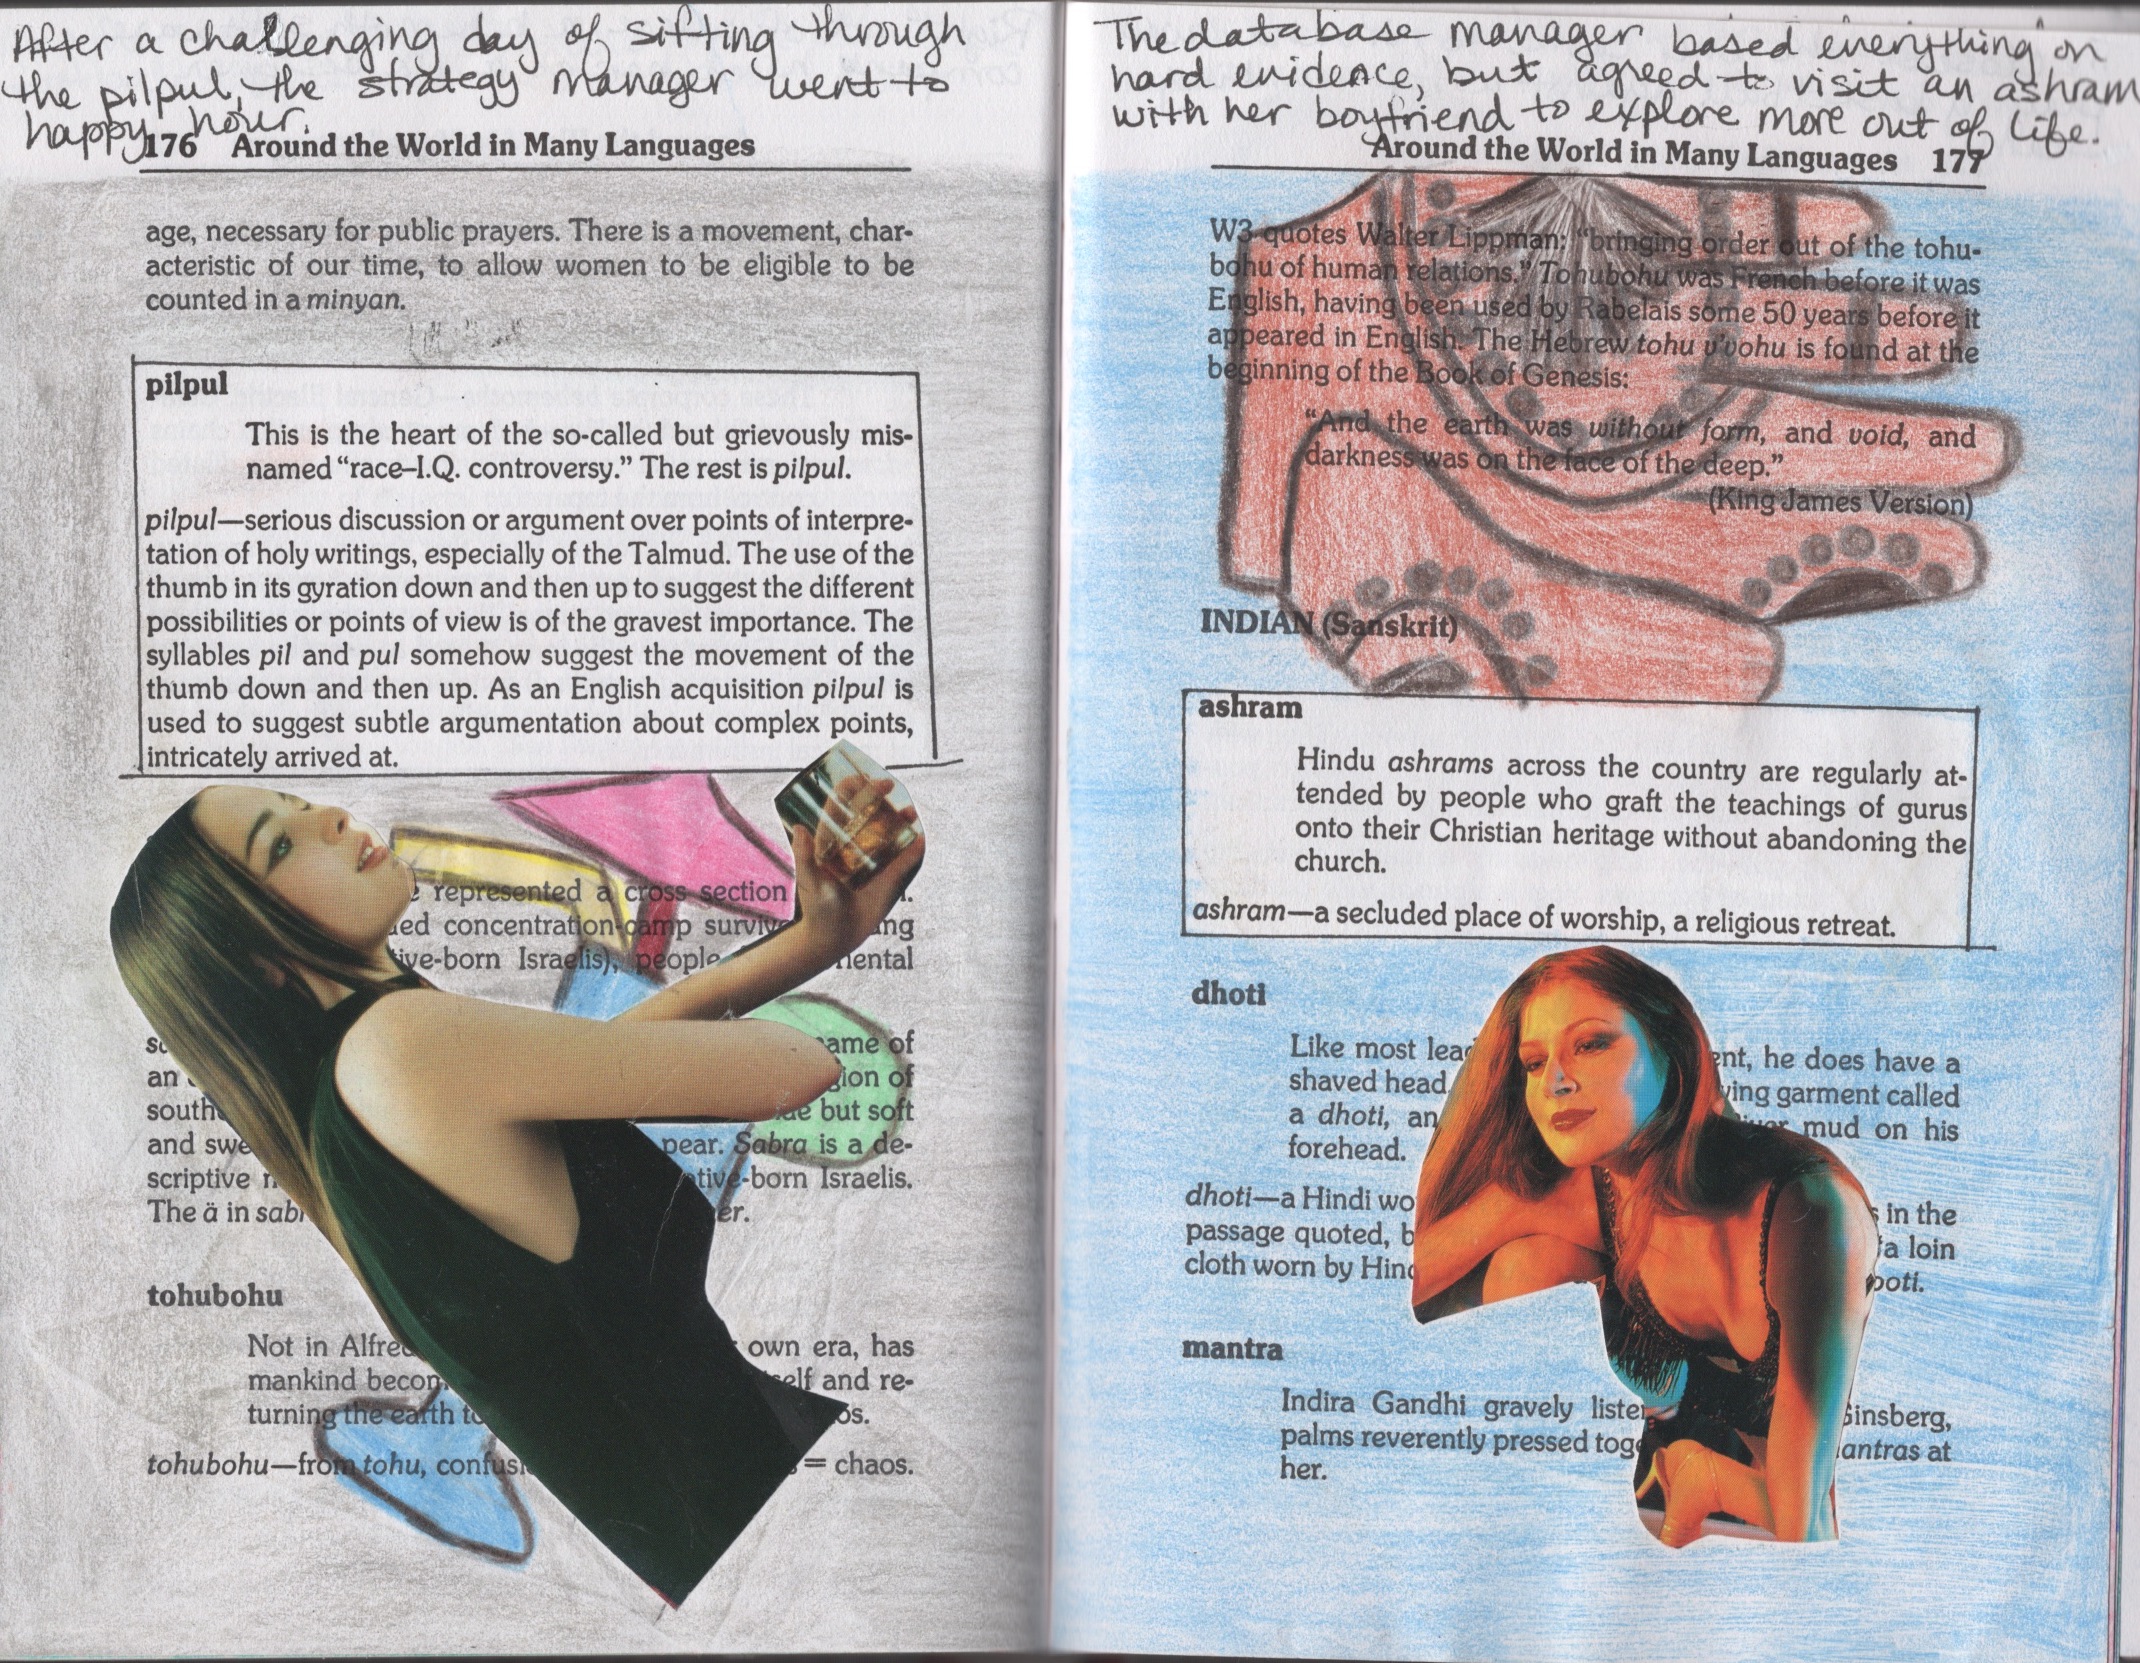 After a challenging day of sifting through
the pilpul, the strategy manager went to
happy hour.
176 Around the World in Many Languages
age, necessary for public prayers. There is a movement, char-
acteristic of our time, to allow women to be eligible to be
counted in a minyan.
pilpul
This is the heart of the so-called but grievously mis-
named “race–I.Q. controversy.” The rest is pilpul.
pilpul—serious discussion or argument over points of interpre-
tation of holy writings, especially of the Talmud. The use of the
thumb in its gyration down and then up to suggest the different
possibilities or points of view is of the gravest importance. The
syllables pil and pul somehow suggest the movement of the
thumb down and then up. As an English acquisition pilpul is
used to suggest subtle argumentation about complex points,
intricately arrived at.
represented a cross section
concentration-camp
-born Israelis), people
of
an of
but soft
and pear. Sabra is a de-
scriptive -born Israelis.
The ä in
tohubohu
Not in own era, has
mankind and re-
turning the earth
tohubohu—from tohu, = chaos.
The database manager based everything on
hard evidence, but agreed to visit an ashram
with her boyfriend to explore more out of life.
Around the World in Many Languages 177
W3 quotes Walter Lippman: “bringing order out of the tohu-
bohu of human relations.” Tohubohu was French before it was
English, having been used by Rabelais some 50 years before it
appeared in English. The Hebrew tohu v’vohu is found at the
beginning of the Book of Genesis:
“And the earth was without form, and void, and
darkness was on the face of the deep.”
(King James Version)
INDIAN (Sanskrit)
ashram
Hindu ashrams across the country are regularly at-
tended by people who graft the teachings of gurus
onto their Christian heritage without abandoning the
church.
ashram—a secluded place of worship, a religious retreat.
dhoti
Like most he does have a
shaved head garment called
a dhoti, mud on his
forehead.
dhoti—a Hindi in the
passage quoted, a loin
cloth worn by
mantra
Indira Gandhi gravely Ginsberg,
palms reverently pressed mantras at
her.